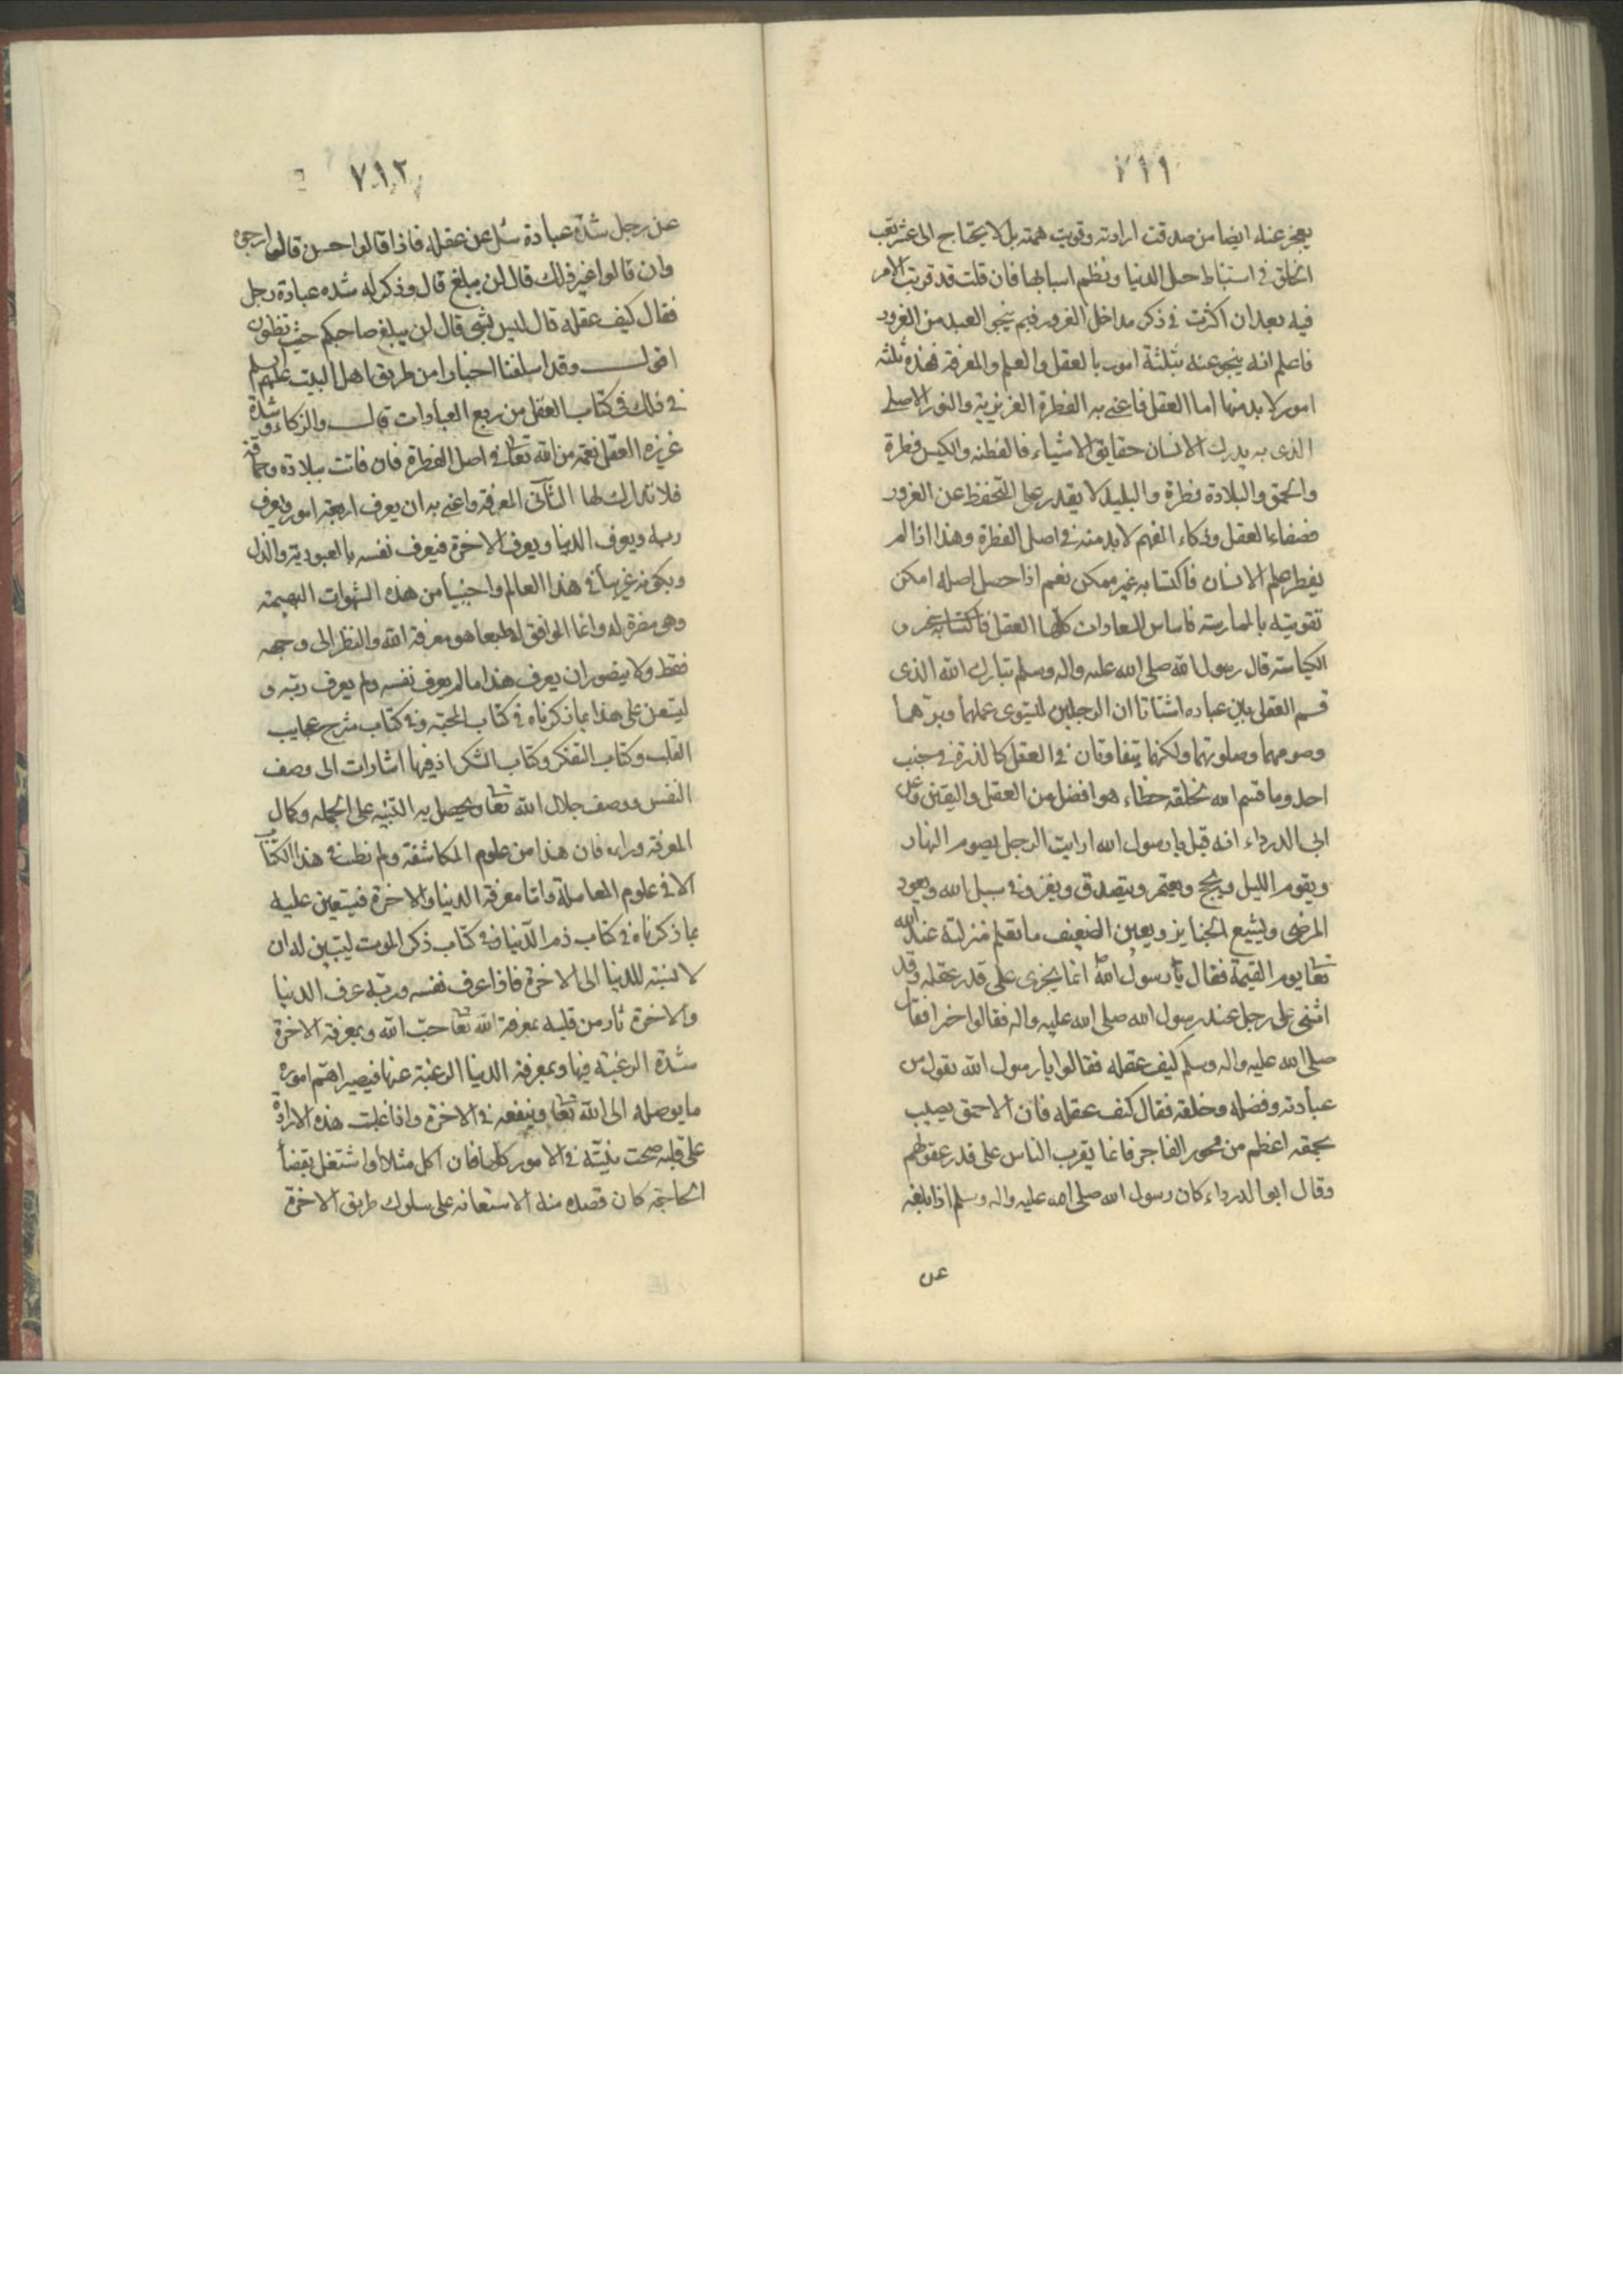 ٧١١
يعجز عنه ايضا من صدقت ارادته وقويت همته بل لا يحتاج الى عشر تعب
الخلق في استنباط حيل الدنيا ونظم اسبابها فان قلت قد قربت الامر
فيه بعد ان اكثرت في ذكر مداخل الغرور فبم ينجو العبد من الغرور
فاعلم انه ينجو عنه بثلثة امور بالعقل والعلم والمعرفة فهذه ثلثه
امور لا بد منها اما العقل فاعنى به الفطرة الغريزية والنور الاصلي
الذى به يدرك الانسان حقايق الاشياء فالفطنه والكيس فطرة
والحمق والبلادة فطرة والبليد لا يقدر على التحفظ عن الغرور
فصفاء العقل وذكاء الفهم لا بد منه في اصل الفطرة وهذا اذا لم
يفطر عليه الانسان فاكتسابه غير ممكن نعم اذا حصل اصله امكن
تقويته بالممارسة فاساس السعادات كلها العقل و
الكياسة قال رسول الله صلى الله عليه واله وسلم تبارك الله الذى
قسم العقل بين عباده اشتاتا ان الرجلين ليستوى عملهما وبرهما
وصومهما وصلوتهما ولكنهما يتفاوتان في العقل كالذرة في جنب
احد وما قسم الله لخلقه حظاء هو افضل من العقل واليقين وعن
ابى الدرداء انه قيل يا رسول الله ارايت الرجل يصوم النهار
ويقوم الليل ويحج ويعتمر ويتصدق ويغزو في سبيل الله ويعود
المرضى ويشيع الجنايز ويعين الضعيف ما تعلم منزلته عند الله
تعا يوم القيمة فقال يا رسول الله انما يجزى على قدر عقله وقد
اثنى على رجل عند رسول الله صلى الله عليه واله فقالوا خيرا فقال
صلى الله عليه واله وسلم كيف عقله فقالوا يا رسول الله نقول من
عبادته وفضله وخلقه فقال كيف عقله فان الاحمق يصيب
بحمقه اعظم من فجور الفاجر فانما يقرب الناس على قدر عقولهم
وقال ابو الدرداء كان رسول الله صلى الله عليه واله وسلم اذا بلغه
عن
٧١٢
عن رجل شدة عبادة سئل عن عقله فاذا قالوا حسن قال ارجوه
وان قالوا غير ذلك قال لن يبلغ قال وذكر له شده عبادة رجل
فقال كيف عقله قال ليس بشى قال لن يبلغ صاحبكم حيث تظنون
اقول وقد اسلفنا اخبارا من طريق اهل البيت عليهم السلم
في ذلك في كتاب العقل من ربع العبادات قال والزكاء وشدة
غريزه العقل نعمة من الله تعالى في اصل الفطرة فان فاتت ببلادة وحماقة
فلا تدارك لها الثانى المعرفة واعنى به ان يعرف اربعة امور يعرف
ربه ويعرف الدنيا ويعرف الاخرة فيعرف نفسه بالعبودية والذل
وبكونه غريبا في هذا العالم واجنبيا من هذه الشهوات البهيمته
وهى مضرة له وانما الموافق له طبعا هو معرفة الله والنظر الى وجهه
فقط ولا يتصور ان يعرف هذا ما لم يعرف نفسه ولم يعرف ربه و
ليستعن على هذا بما ذكرناه في كتاب المحبة وفي كتاب شرح عجايب
القلب وكتاب التفكر وكتاب الشكر اذ فيها اشارات الى وصف
النفس ووصف جلال الله تعا ويحصل به التنبيه على الجمله وكمال
المعرفه وراءه فان هذا من علوم المكاشفة ولم نطنب في هذا الكتاب
الا في علوم المعاملة واما معرفة الدنيا والاخرة فيستعين عليه
بما ذكرناه في كتاب ذم الدنيا وفي كتاب ذكر الموت ليتبين له ان
لا نسبة للدنيا الى الاخرة فاذا عرف نفسه وربه عرف الدنيا
والاخرة ثار من قلبه بمعرفة الله تعا حب الله وبمعرفة الاخرة
شدة الرغبة فيها وبمعرفة الدنيا الرغبة عنها فيصير اهتم اموره
ما يوصله الى الله تعا وينفعه في الاخرة واذا غلبت هذه الارادة
على قلبه صحت نيته في الامور كلها فان اكل مثلا او اشتغل بقضا
الحاجة كان قصده منه الاستعانه على سلوك طريق الاخرة